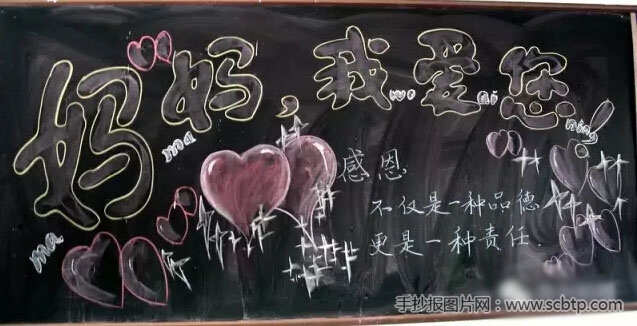 妈妈,我爱您!
ma ma wo ai nin
感恩
不仅是一种品德
更是一种责任.
手抄报图片网:www.scbtp.com